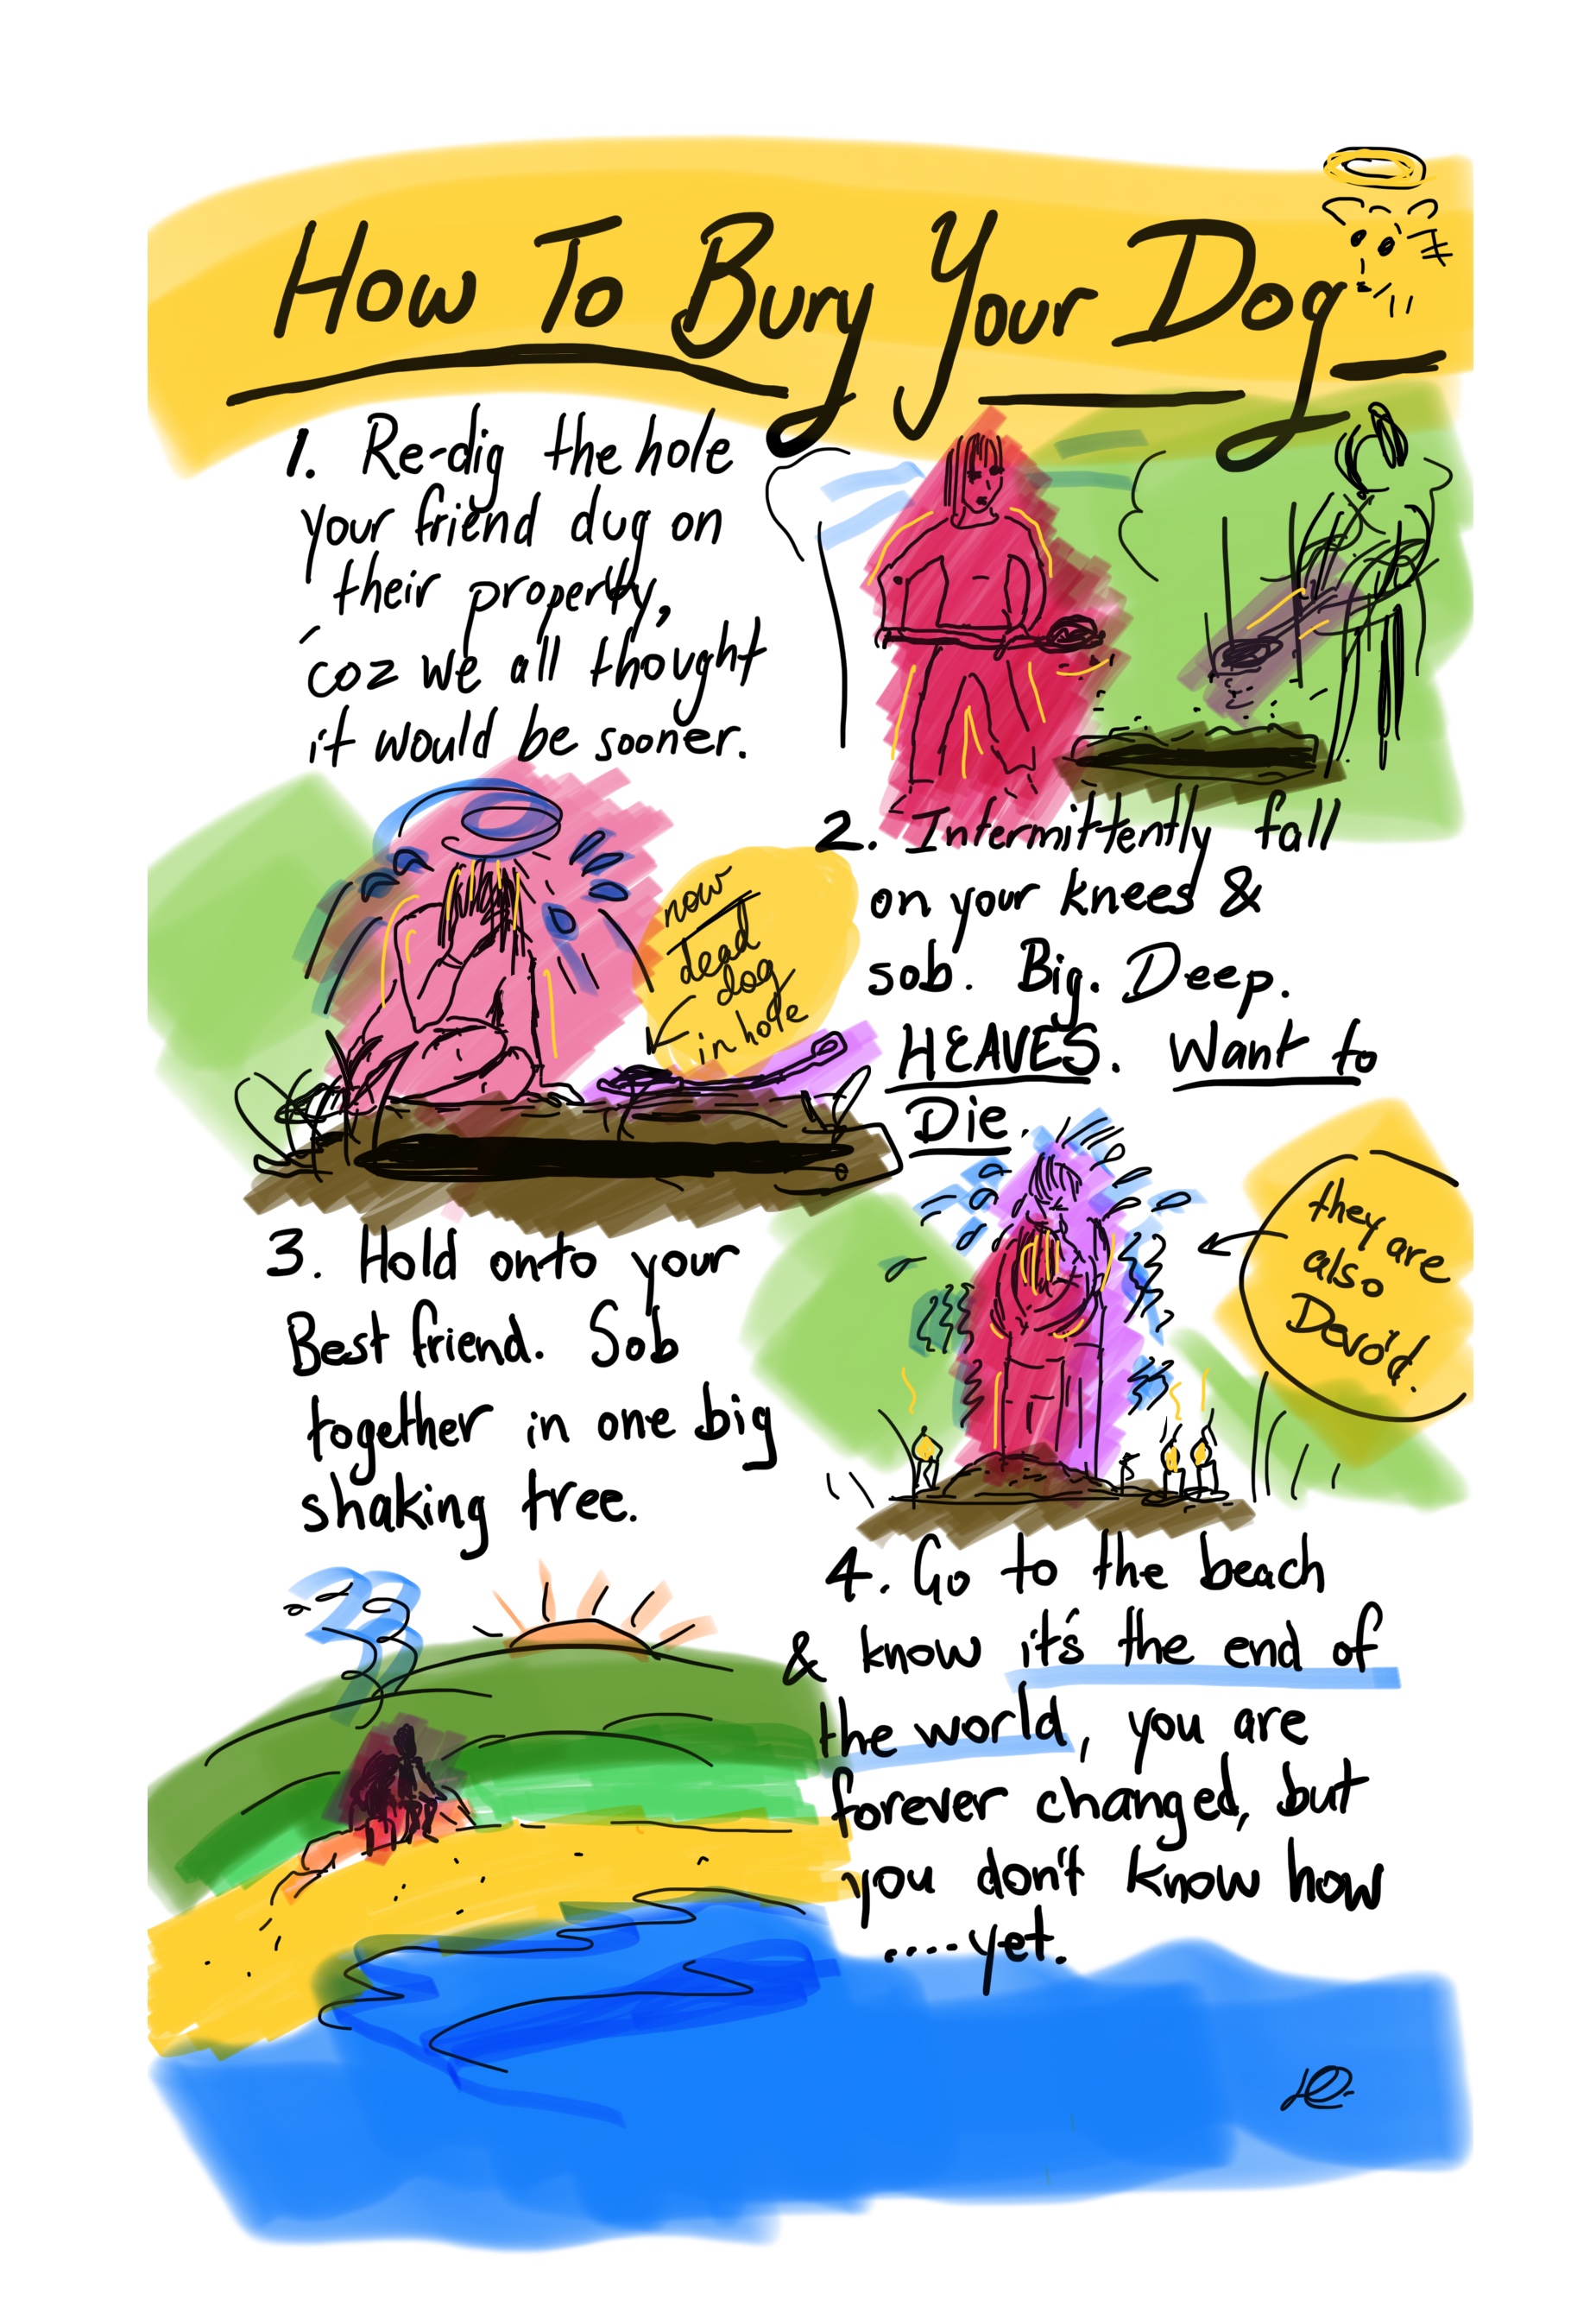 How To Bury Your Dog
1. Re-dig the hole
your friend dug on
their property,
'coz we all thought
it would be sooner.
2. Intermittently fall
on your knees &
sob. Big. Deep.
HEAVES. Want to
Die.
now
dead
dog
in hole
3. Hold onto your
Best friend. Sob
together in one big
shaking tree.
they are
also
Devo'd.
4. Go to the beach
& know it's the end of
the world, you are
forever changed, but
you don't know how
....yet.